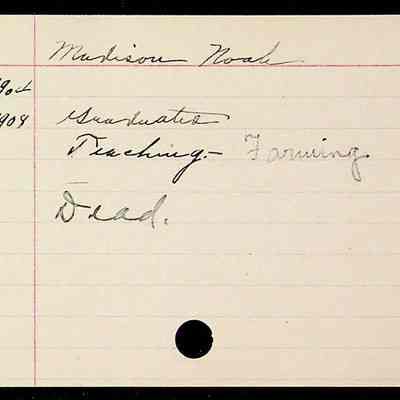 Madison Noah
Graduated
Teaching - Farming
Dead.